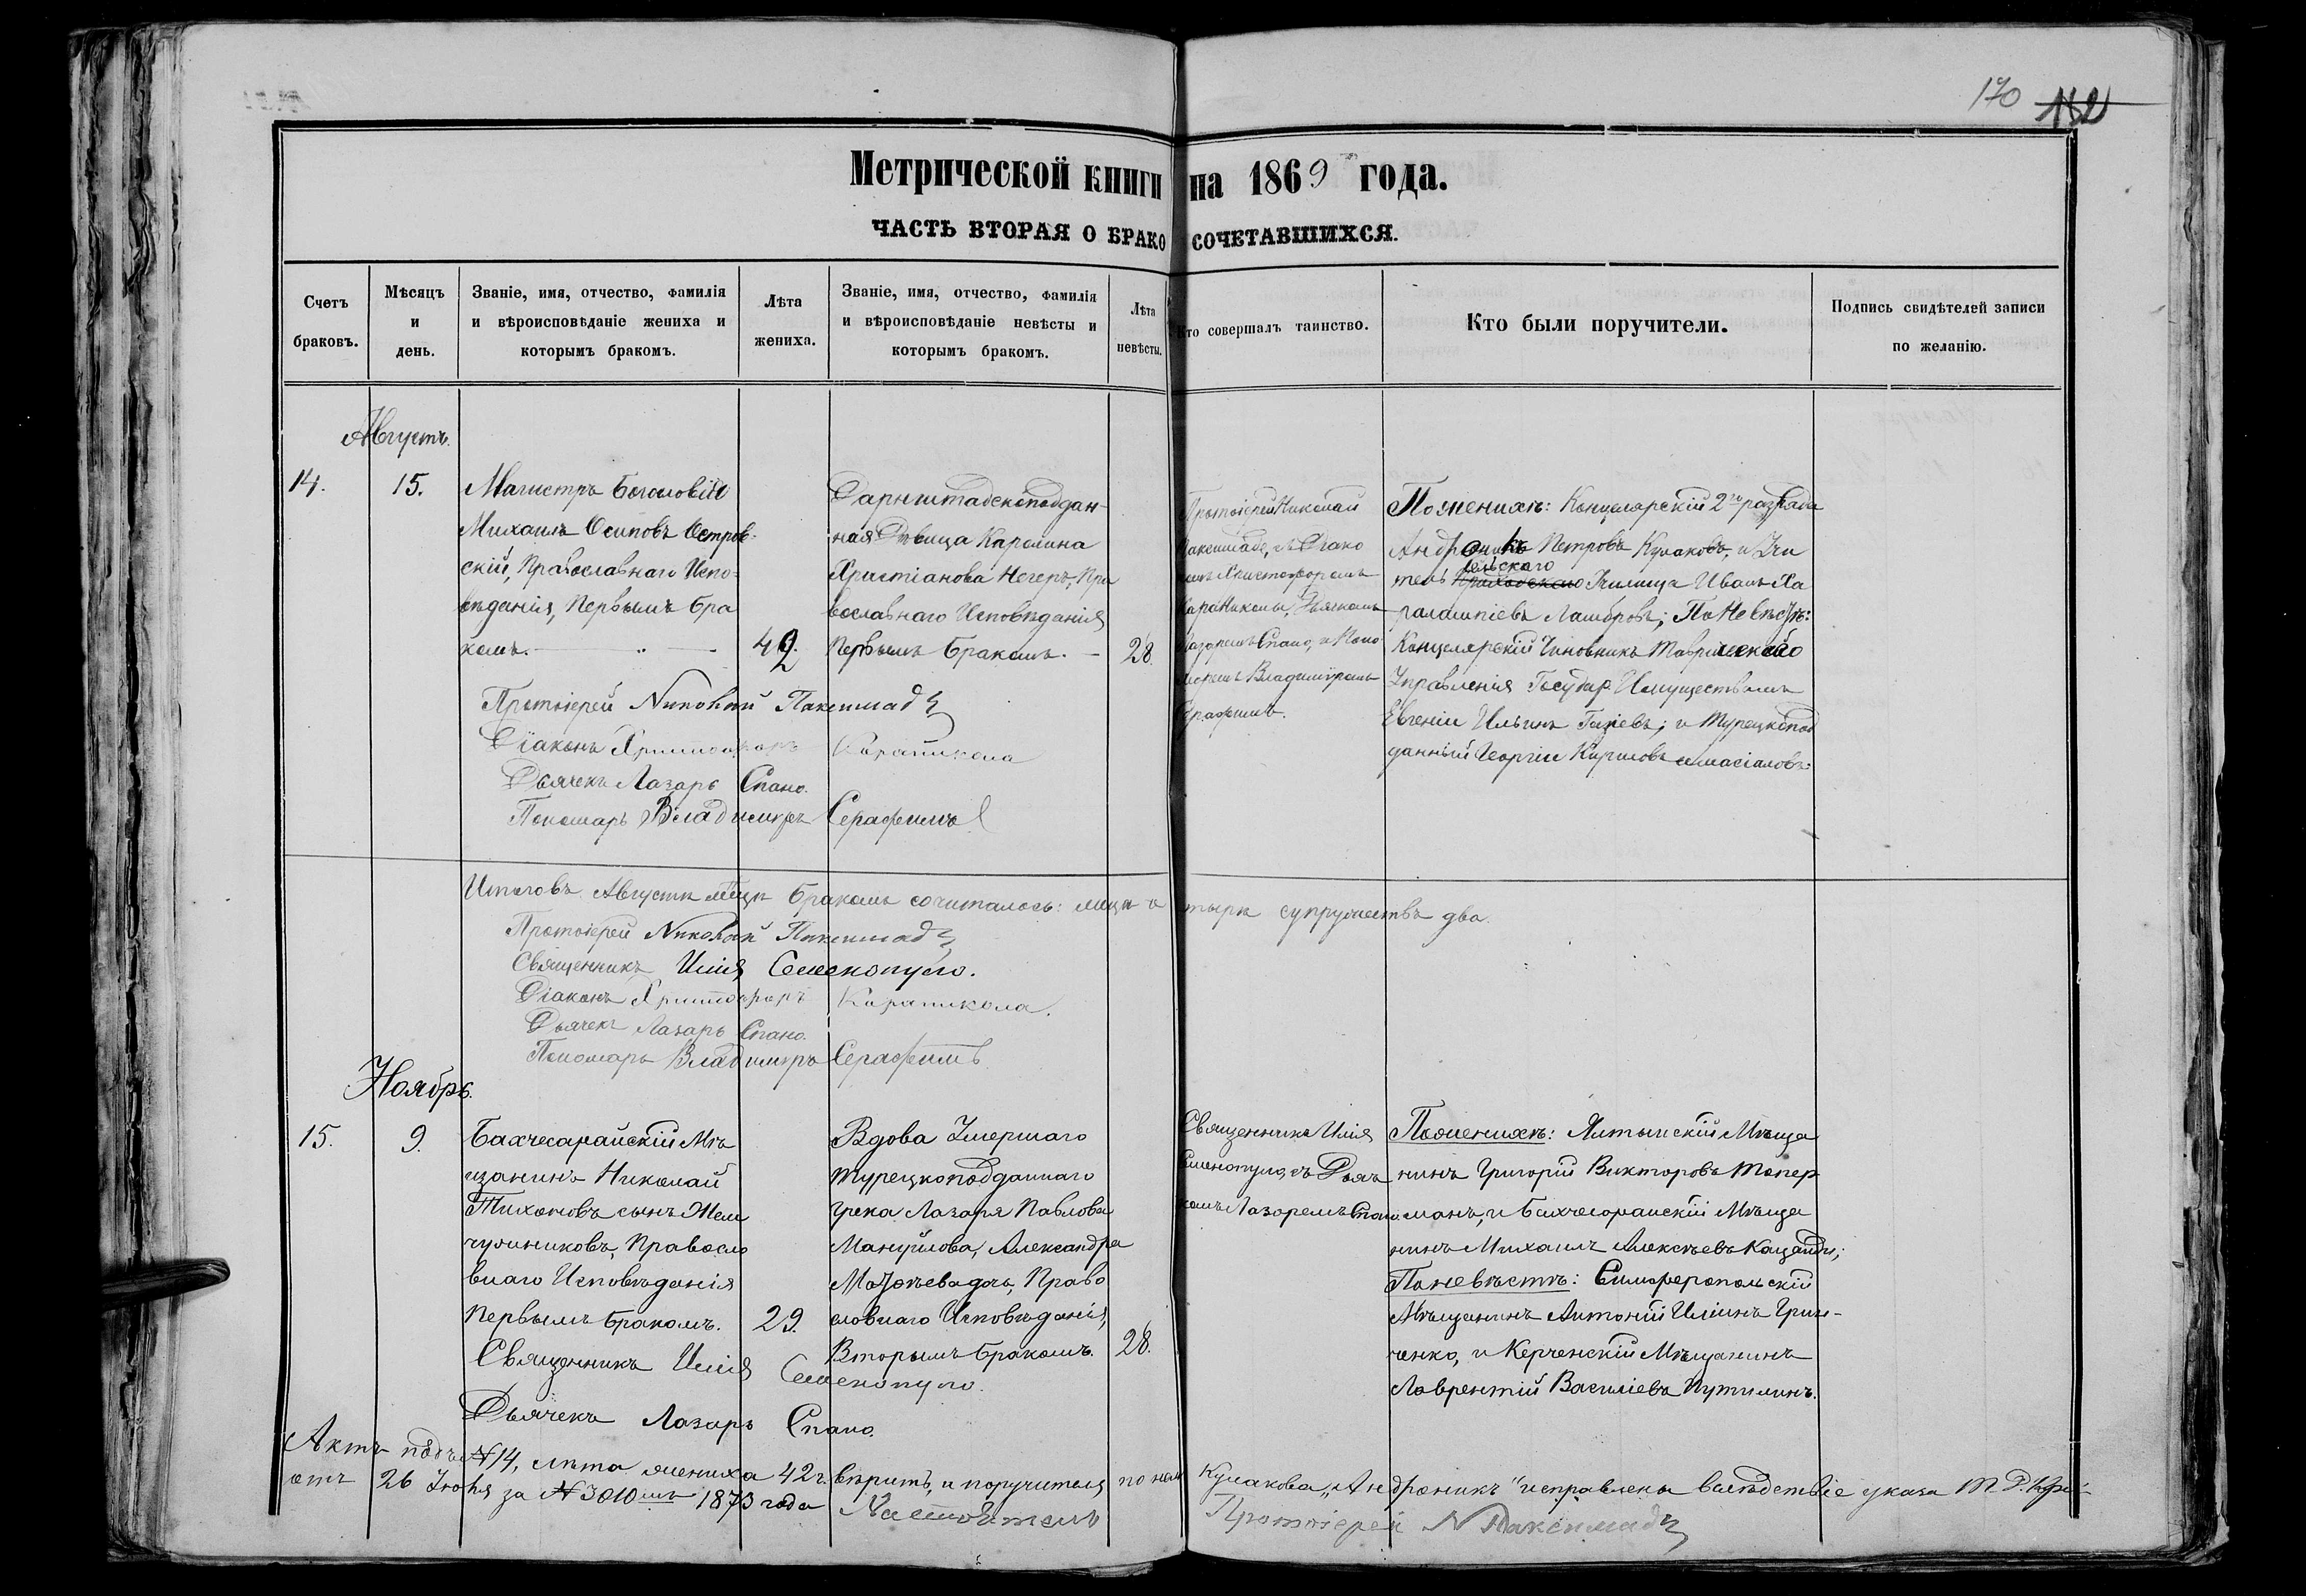 170 182
Метрической книги на 1869 года.
ЧАСТЬ ВТОРАЯ О БРАКОСОЧЕТАВШИХСЯ.
Счетъ
браковъ.
Мѣсяцъ
и
день.
Званіе, имя, отчество, фамилія
и вѣроисповѣданіе жениха и
которымъ бракомъ.
Лѣта
жениха.
Званіе, имя, отчество, фамилія
и вѣроисповѣданіе невѣсты и
которымъ бракомъ.
Лѣта
невѣсты.
Кто совершалъ таинство.
Кто были поручители.
Подпись свидѣтелей записи
по желанію.
Августъ.
14.
15.
Магистръ Богословія
Михаилъ Осиповъ Остров-
скій, Православнаго Испо-
вѣданія, Первымъ Бра
комъ.
42.
Дармштадскоподдан-
ная Дѣвица Каролина
Христіанова Негеръ, Пра
вославнаго Исповѣданія
Первымъ Бракомъ. —
28.
Протоіерей Николай
Паксимаде, съ Діако
номъ Христофоромъ
КараНиколы, Дьячкомъ
Лазоремъ Спано, и Поно
маремъ Владиміромъ
Серафимъ.
По женихѣ: Канцелярскій 2го разряда
Андроникъ Петровъ Кулаковъ, и Учи
тель Училища Иванъ Ха
рлампіевъ Ламбровъ; По Невѣстѣ:
Канцелярскій Чиновникъ Таврическаго
Управленія Государ. Имуществамъ
Евгеній Ильинъ; и Турецкопод
данный Георгіи Кириловъ
Протоіерей Николай Паксимадѣ
Діаконъ Христофоръ Караникола
Дьячекъ Лазарь Спано.
Пономарь Владимиръ Серафимъ
Итого въ Августѣ мѣцѣ бракомъ сочиталось: супружествъ два.
Протоіерей Николай Паксимадѣ
Священникъ Илія Семенопуло.
Діаконъ Христофоръ Караникола.
Дьячекъ Лазарь Спано.
Пономарь Владимиръ Серафимъ
Ноябрь.
15.
9.
Бахчесарайскій Мѣ
щанинъ Николай
Тихоновъ сынъ Жем
чужниковъ, Правосла
внаго Исповѣданія
Первымъ Бракомъ.
29.
Вдова Умершаго
Турецкоподданнаго
Грека Лазаря Павлова
Мануйлова, Александра
Матѳѣева дочь, Право
славнаго Исповѣданія,
Вторымъ Бракомъ.
28.
Священникъ Илія
Семенопуло, съ Дьяч
комъ Лазоремъ Спано
По женихѣ: Ялтинскій Мѣща
нинъ Григорій Викторовъ Топер
манъ, и Бахчесарайскій Мѣща
нинъ Михаилъ Алексѣевъ
По невѣстѣ: Симферопольскій
Мѣщанинъ Антоній Иліинъ Гри-
ченко, и Керченскій Мѣщанинъ
Лаврентій Василіевъ Путилинъ.
Священникъ Илія Семенопуло.
Дьячекъ Лазарь Спано.
Актъ подъ №14, лѣта жениха 42 г. вѣрить, и поручителя по нем Кулакова „Андроникъ" исправлены вслѣдствіе указа Т. Д.
отъ 26 Іюня за №3010мъ 1873 года Настоятель Протоіерей N Паксимадѣ